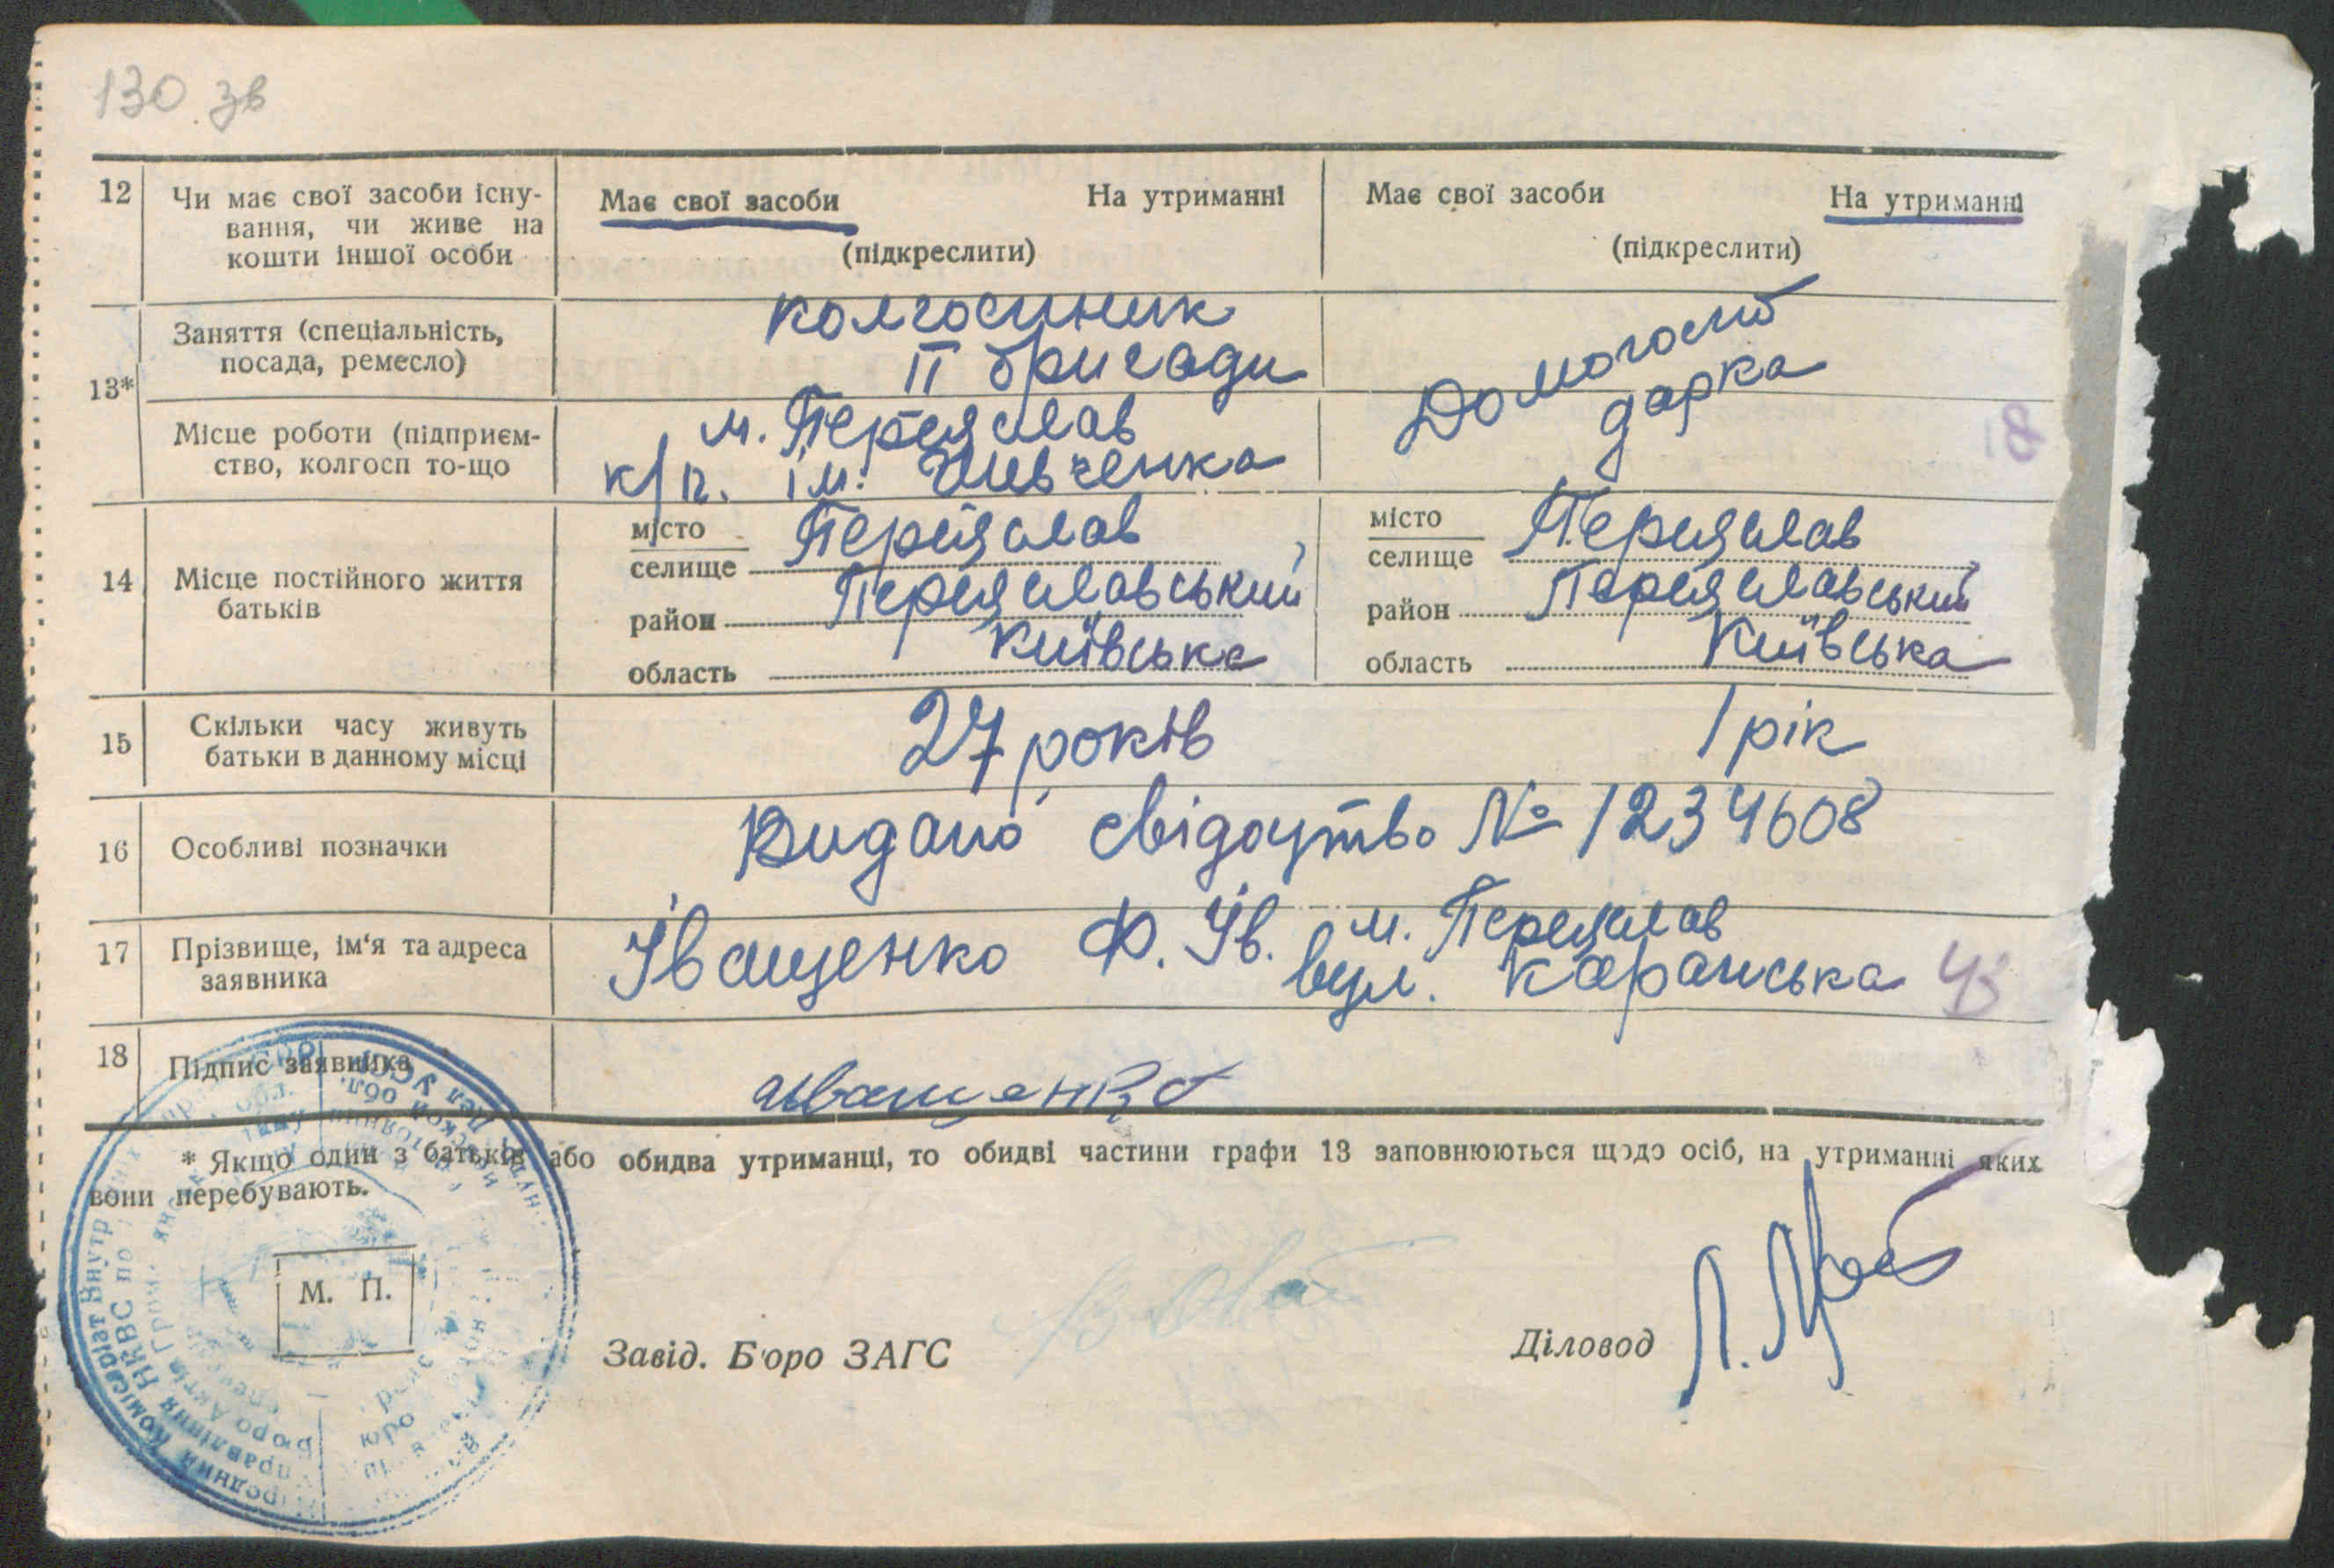 130 зв
12 Чи має свої засоби існу- Має свої засоби На утриманні Має свої засоби На утриманні
вання, чи живе на
кошти іншої особи (підкреслити) (підкреслити)
13* Заняття (спеціальність,
посада, ремесло)
колгоспник
ІІ бригади
Домогоспо
дарка
Місце роботи (підприєм-
ство, колгосп то-що
м. Переяслав
к/г. ім. Шевченка
18
14 Місце постійного життя
батьків
місто Переяслав
селище
район Переяславський
область Київська
місто Переяслав
селище
район Переяславський
область Київська
15 Скільки часу живуть
батьки в данному місці
27 років 1 рік
16 Особливі позначки Видано свідоцтво № 1234608
17 Прізвище, ім'я та адреса
заявника
Іващенко Ф. Ів. м. Переяслав
вул. Каранська 43
18 Підпис заявника Иващенко
* Якщо один з батьків або обидва утриманці, то обидві частини графи 13 заповнюються щодо осіб, на утриманні яких
вони перебувають.
М. П.
Завід. Бюро ЗАГС Діловод